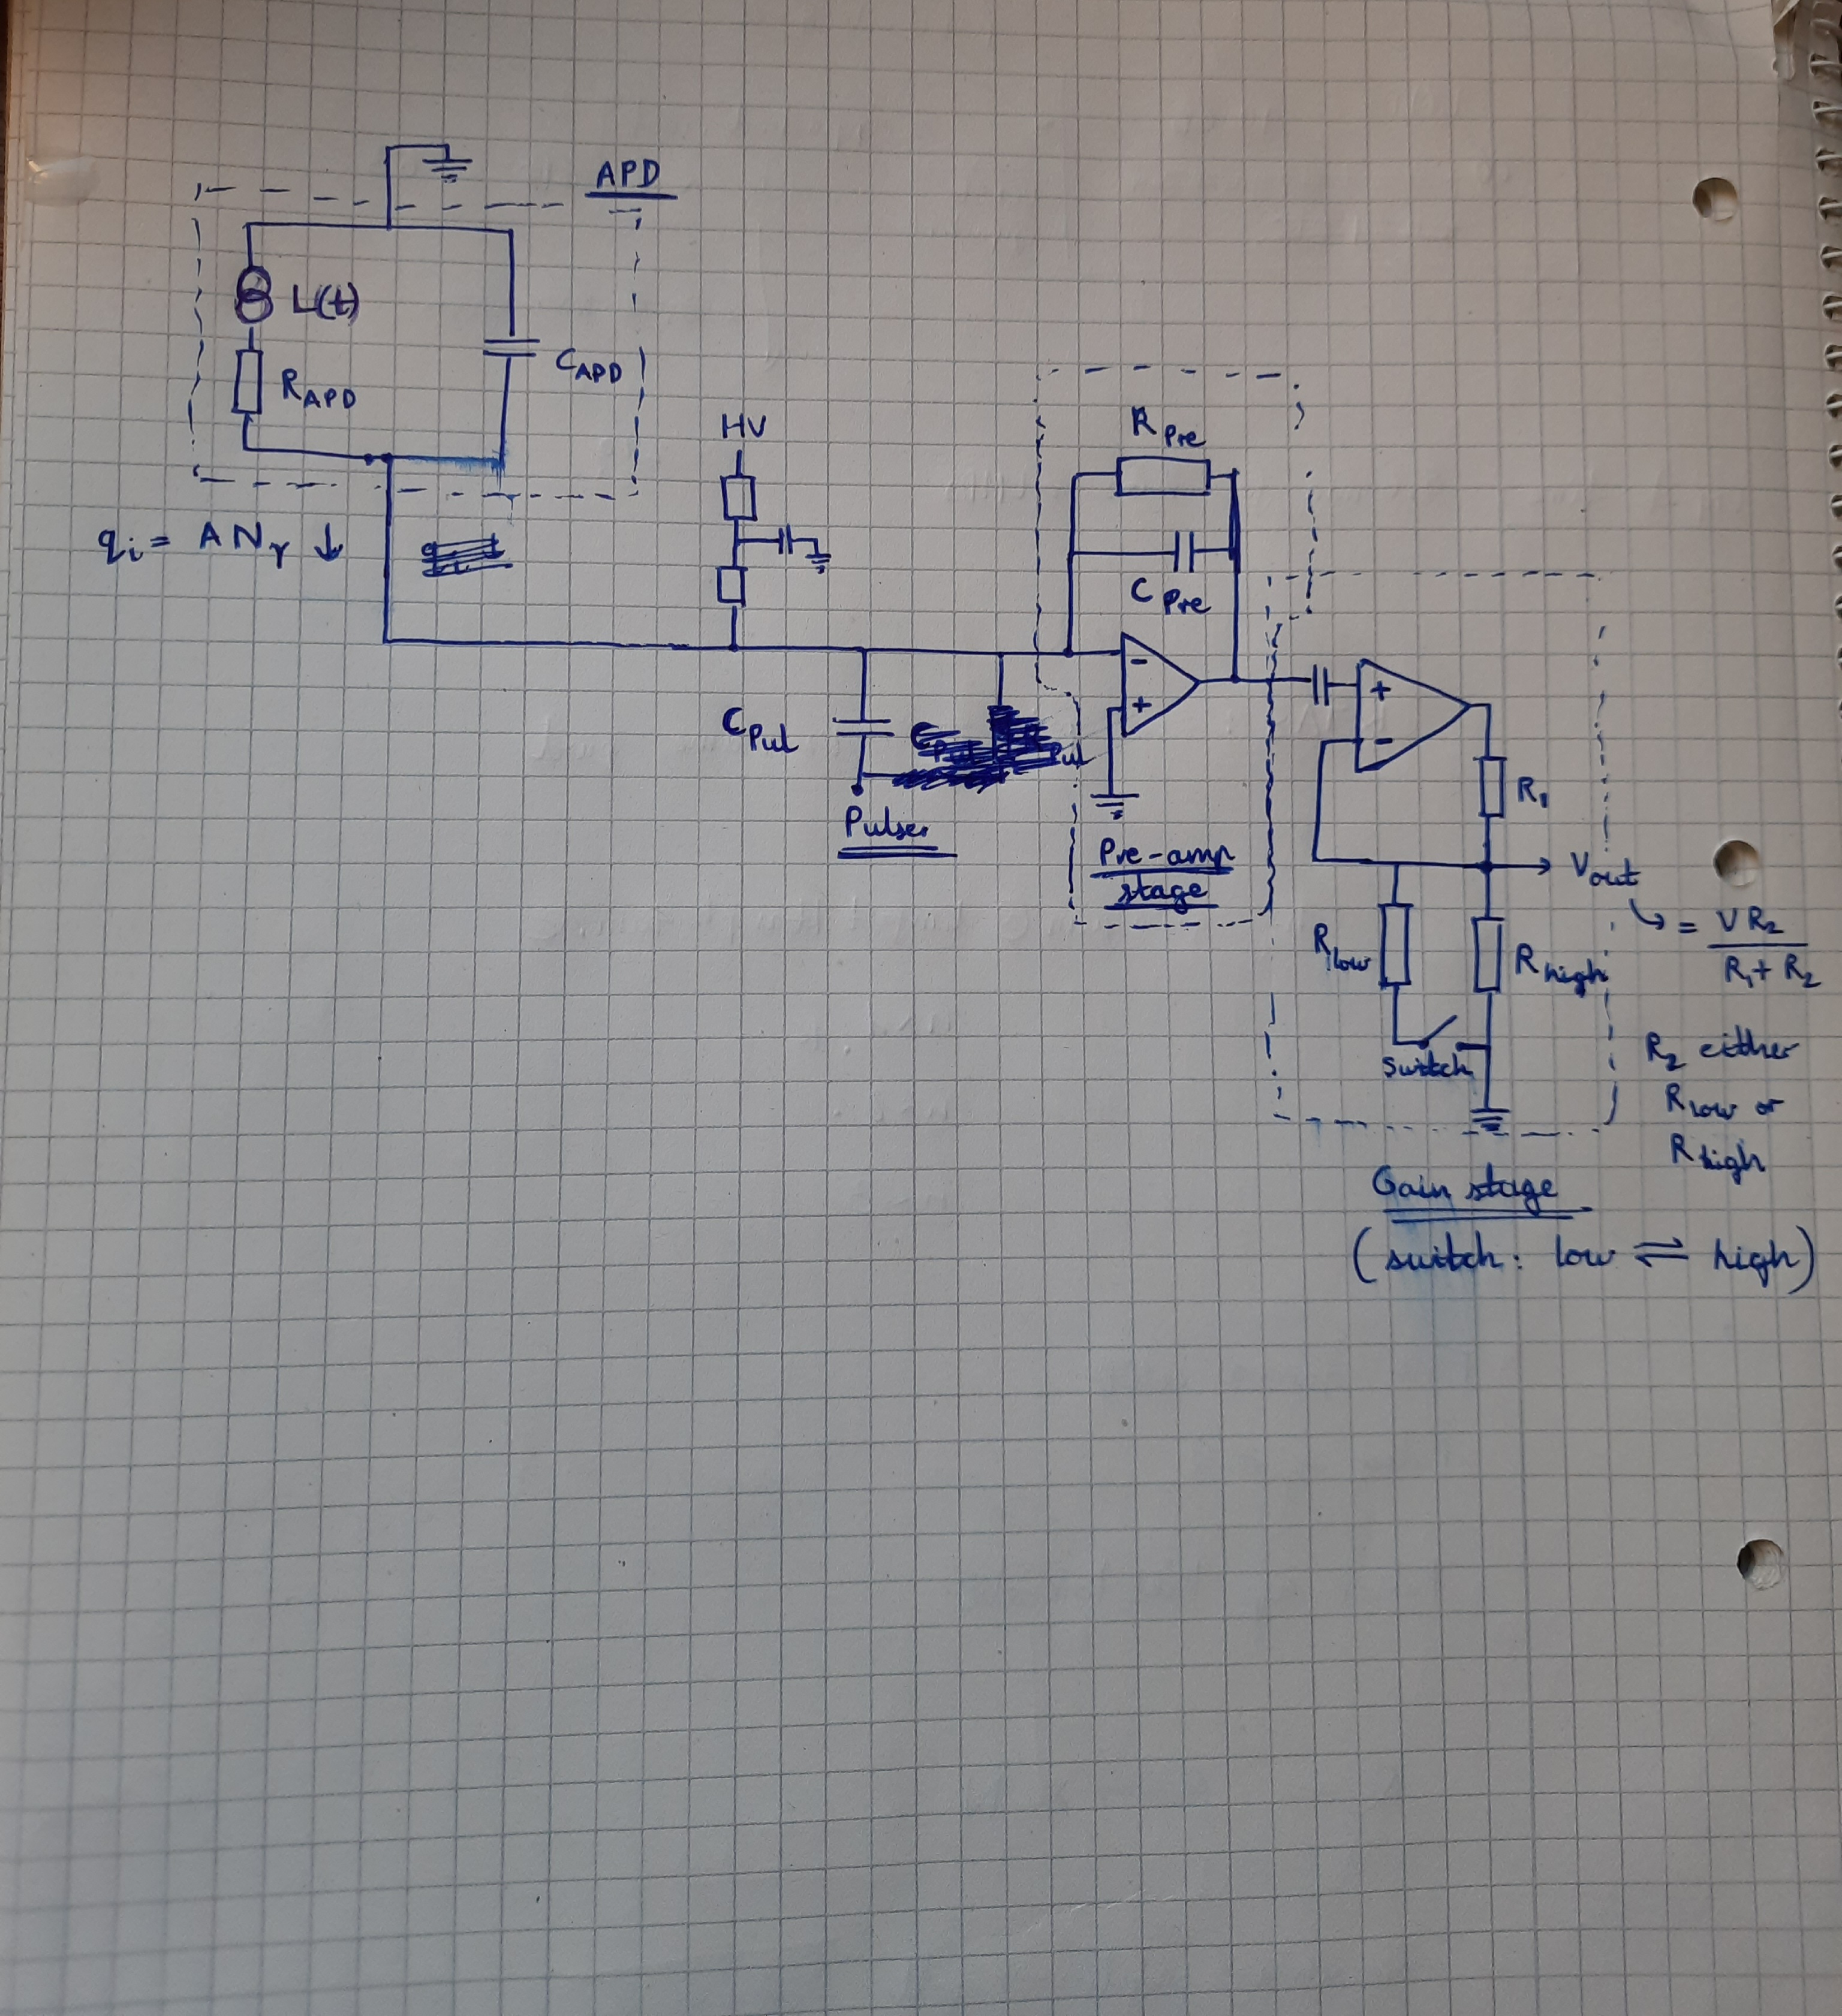 APD
L(t)
R_APD
C_APD
q_i = A N_γ ↓
HV
R_Pre
C_Pre
-
+
C_Pul
Pulser
Pre-amp
stage
+
-
R_1
V_out
= V R_2 / R_1 + R_2
R_low
R_high
Switch
R_2 either
R_low or
R_high
Gain stage
(switch: low ⇌ high)